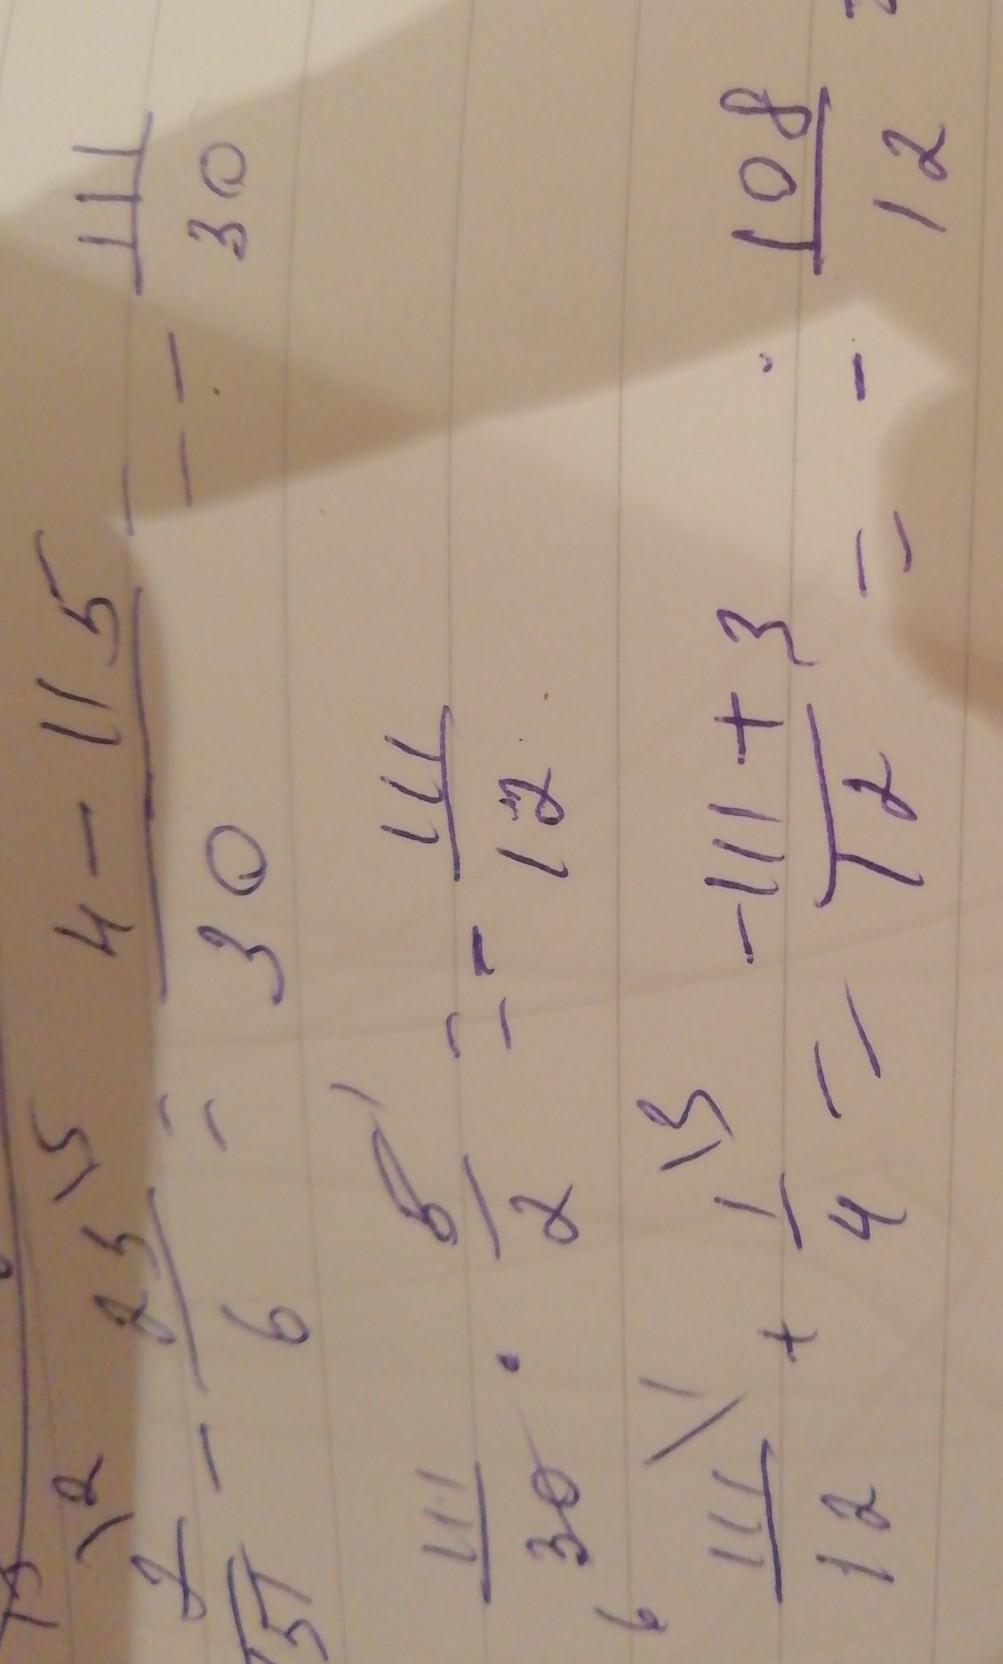 \2 \5
2/15 - 23/6 = 4 - 115/30 = - 111/30
111/30 · 5/2 = - 111/12
6
111/12 \1 + 1/4 \3 = -111 + 3/12 = - 108/12